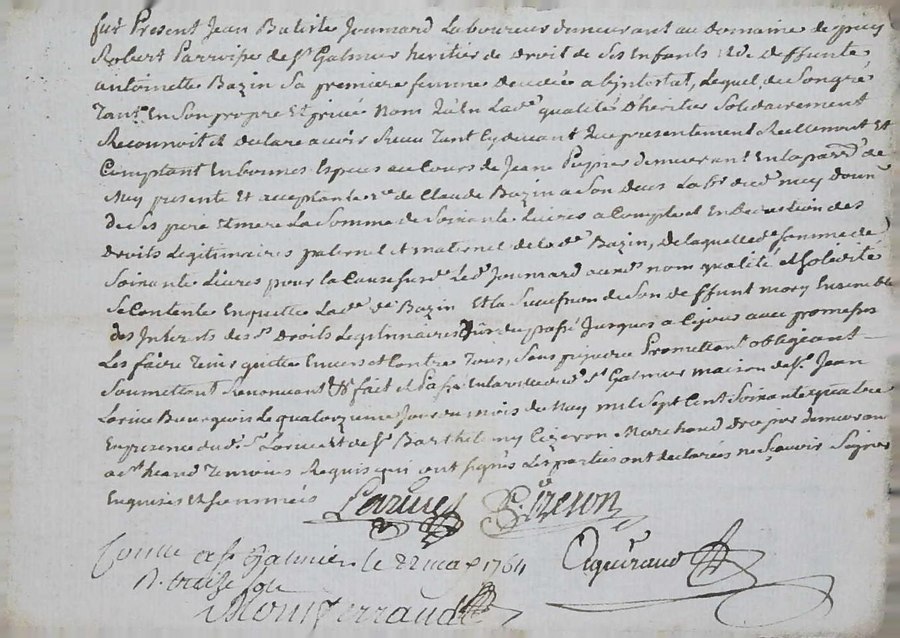 fut Present Jean Batiste Joumard Laboureur demeurant au Domaine de
Robert Parroisse de st Galmier heritier de Droit de ses Enfants & de deffunte
antoinette Bazin Sa premiere femme decedée abjntestat, Lequel de Son gré
Tant En Son propre Et privé Nom qu'En Lade qualité d'heritier Solidairement
Reconnoit et declare avoir Receu Tant Cydevant que presentement Reellement Et
Comptant En bonnes Especes au Cours de Jeane demeurant En la parrse de
presente Et acceptante ve de Claude Bazin a Son deces
de Ses pere Et mere La Somme de Soixante Livres a Compte et En Deduction des
Droits Legitimaires paternel et maternel de lade Bazin, de laquelle de Somme de
Soixante Livres pour la Cause Led Joumard auxd nom qualité et Solidité
Se Contente En quitte Lade ve Bazin Et la Succession de Son deffunt mary Ensemble
des Interets desd Droits Legitimaires du passé Jusques a Cejour avec promesse
Les faire Tenir quitte Envers et Contre Tous, Sans prejudice Promettant obligeant
Soumettant Renoncant && fait et passé En la ville de st Galmier maison de Sr Jean
Larive Bourgeois Le quatorzieme Jour du mois de May mil Sept Cent Soixante quatre
En presence dud Sr Larive Et de Sr Barthelemy Cizeron Marchand Drapier demeurant
a st heand Temoins Requis qui ont Signés Les parties ont declarées ne Sçavoir Signer
Enquises Et Sommées
Larive B. Cizeron
Conlle a st Galmier le 22 may 1764
R. treize sols
Aguiraud
Montferrand